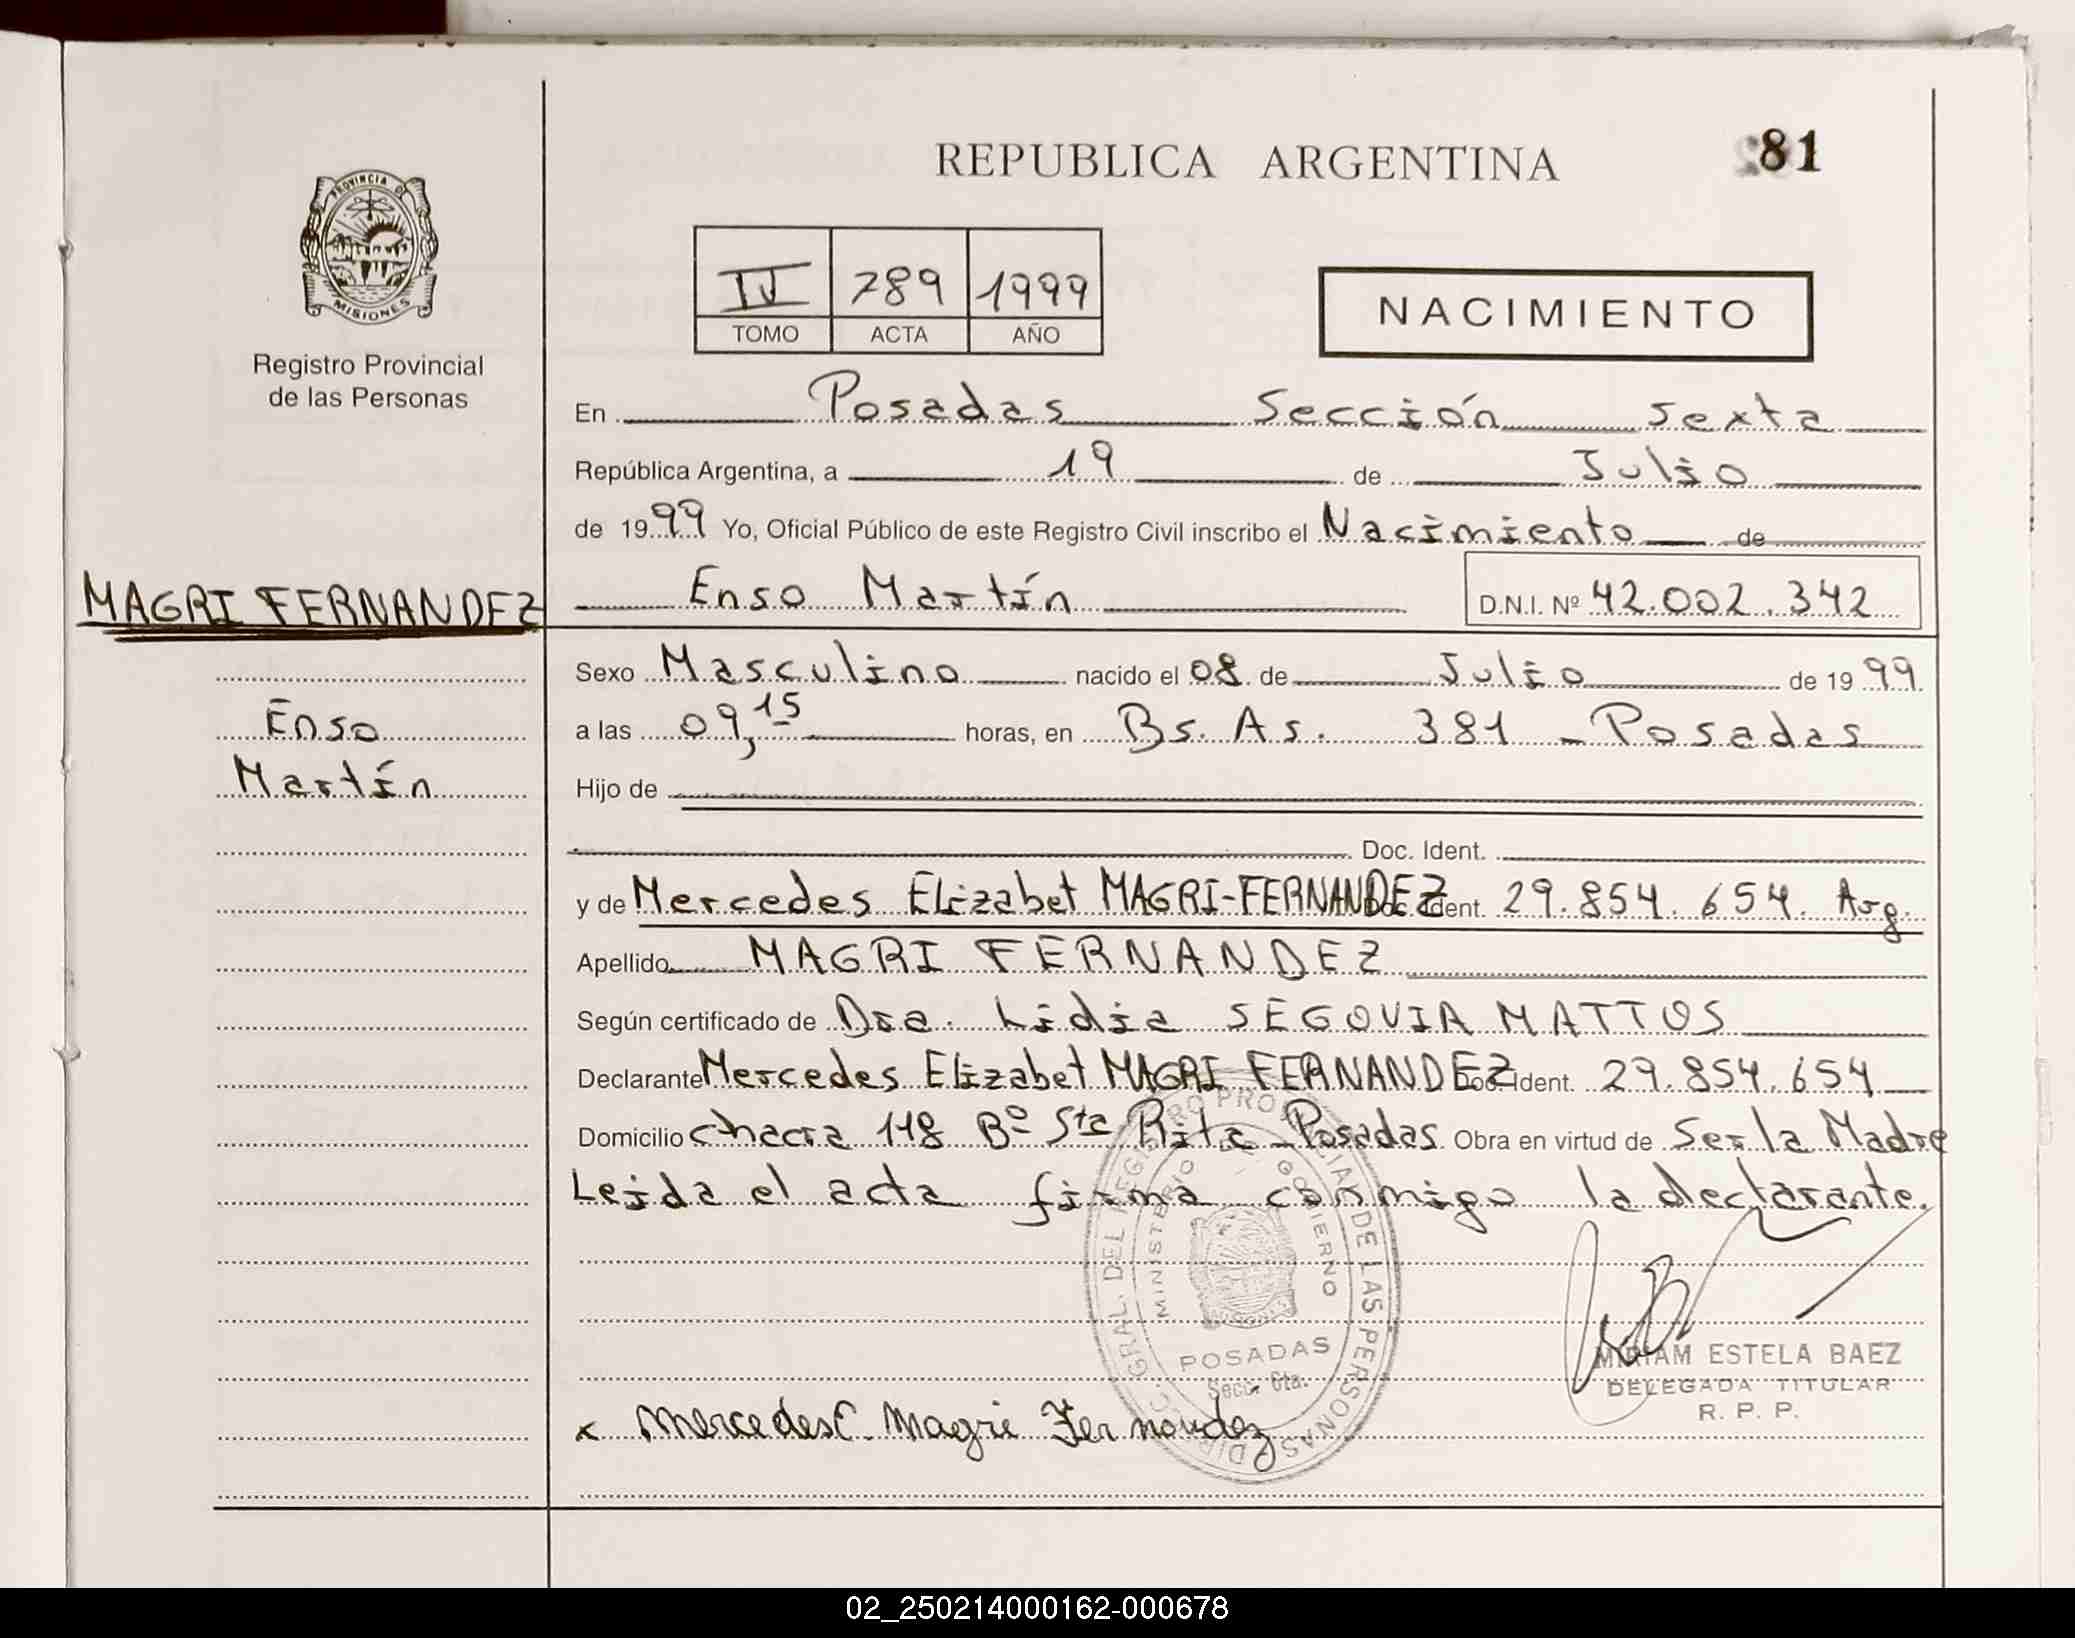 REPUBLICA ARGENTINA
81
PROVINCIA D
MISIONES
Registro Provincial
de las Personas
789 1999
TOMO ACTA AÑO
NACIMIENTO
En Posadas Sección Sexta
República Argentina, a 19 de Julio
de 1999 Yo, Oficial Público de este Registro Civil inscribo el Nacimiento de
MAGRI FERNANDEZ
Enso Martín D.N.I. Nº 42.002.342
Sexo Masculino nacido el 08 de Julio de 1999
Enso
a las 09,15 horas, en Bs. As. 381 - Posadas
Martín
Hijo de
Doc. Ident.
y de Mercedes Elizabet MAGRI-FERNANDEZ Doc. Ident. 29.854.654. Arg.
Apellido MAGRI FERNANDEZ
Según certificado de Dra. Lidia SEGOVIA MATTOS
Declarante Mercedes Elizabet MAGRI FERNANDEZ Doc. Ident. 29.854.654
Domicilio Chacra 118 Bº Sta Rita - Posadas Obra en virtud de Ser la Madre
Leida el acta firma conmigo la declarante.
DIRECC. GRAL. DEL REGISTRO PROVINCIAL DE LAS PERSONAS
MINISTERIO DE GOBIERNO
POSADAS
Secc. 6ta.
MIRIAM ESTELA BAEZ
DELEGADA TITULAR
R. P. P.
x Mercedes E. Magri Fernandez
02_250214000162-000678